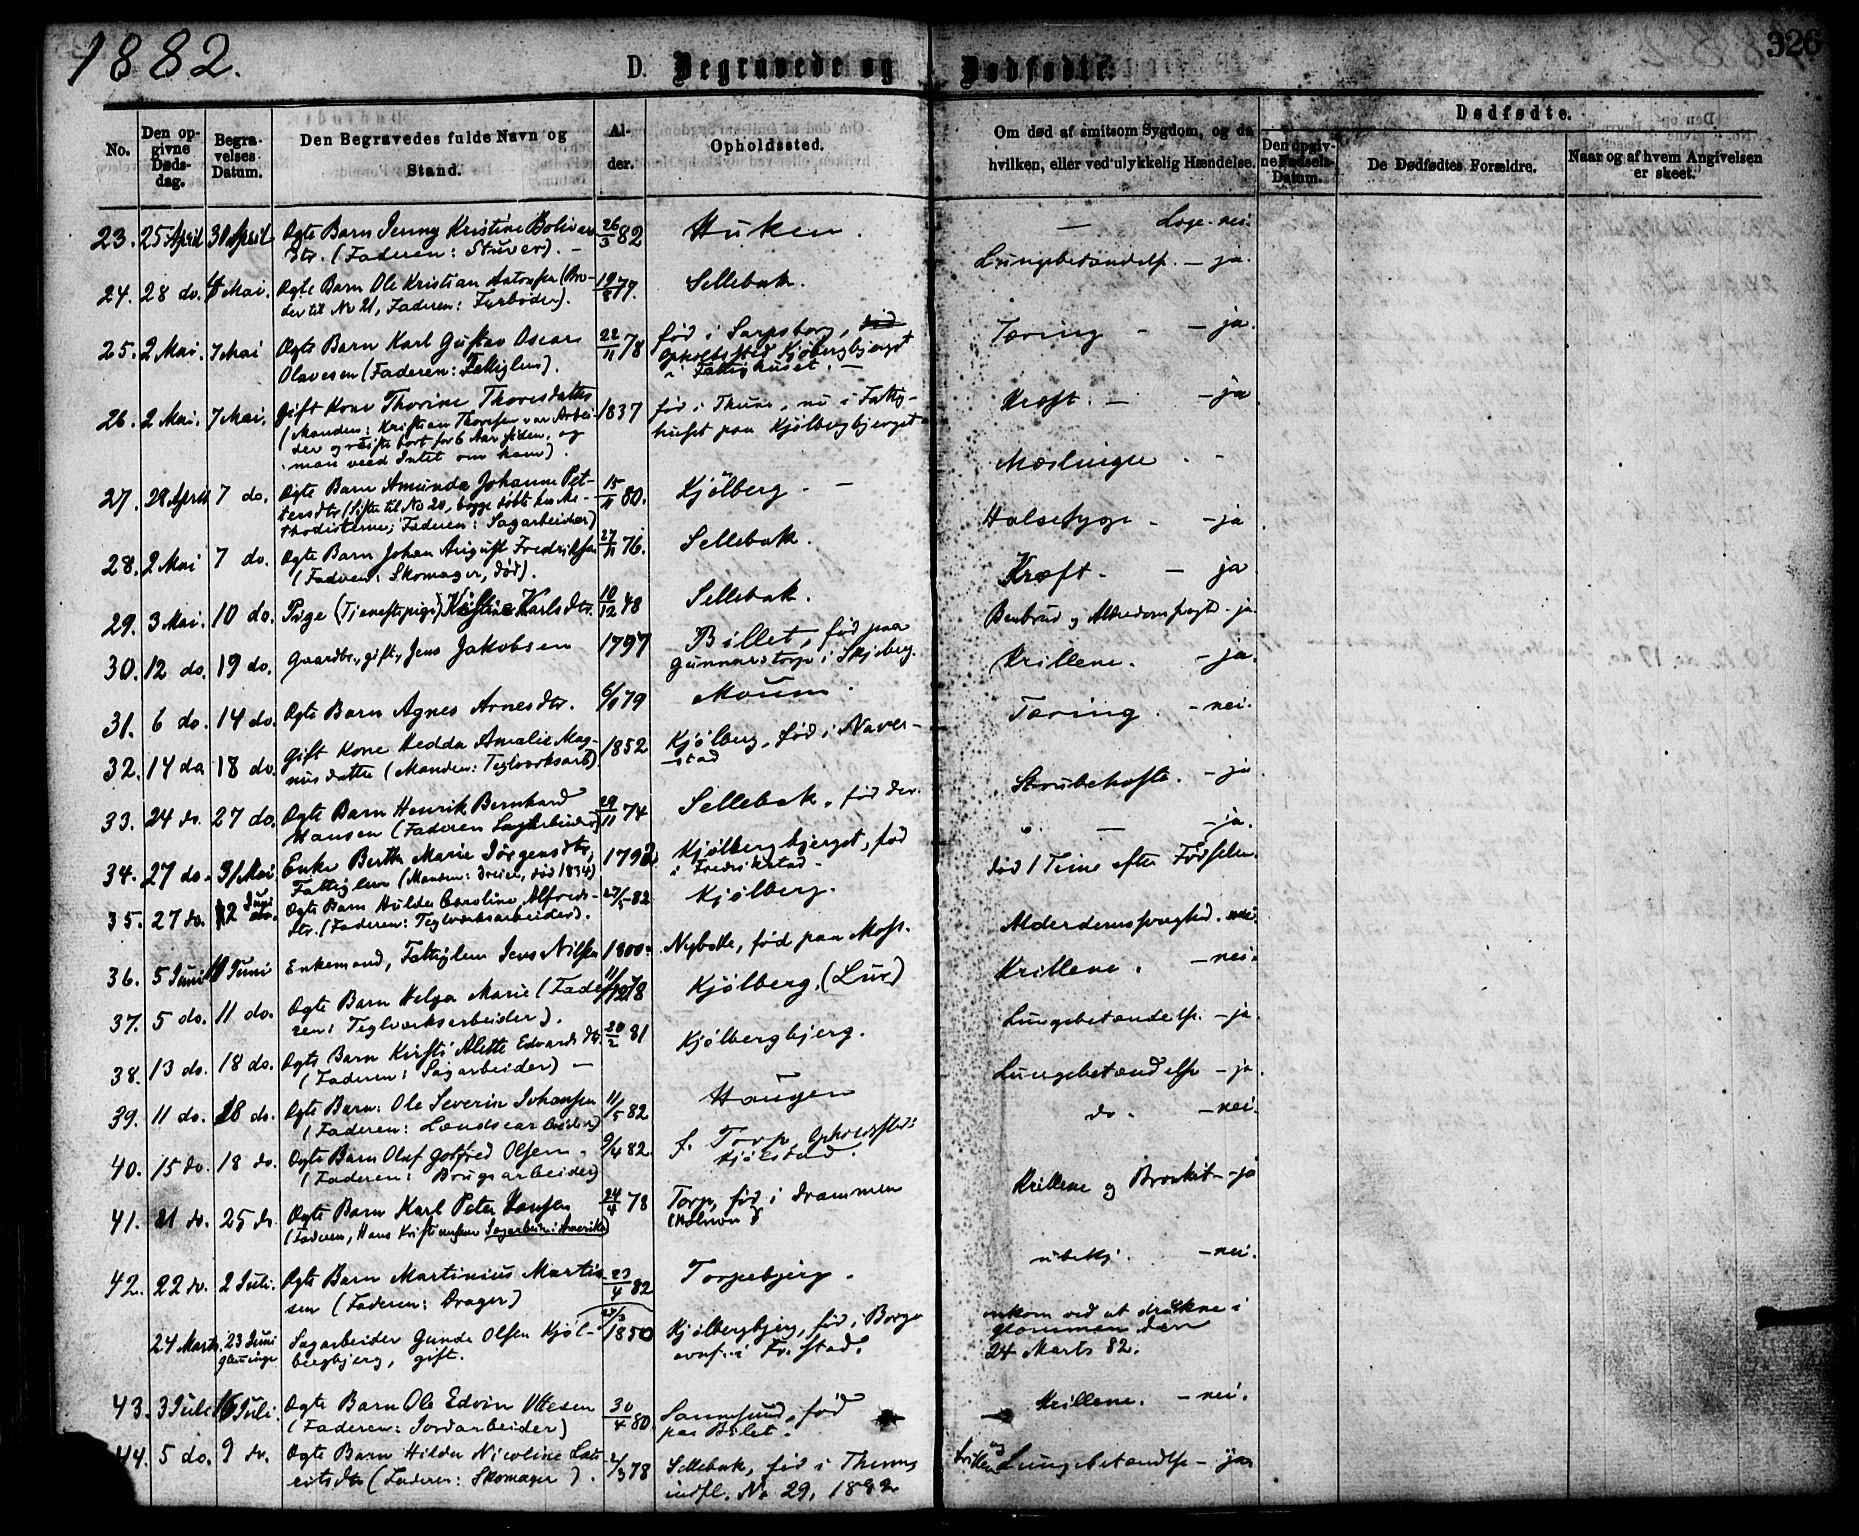 1882.
D. Begravede og Dødfødte.
326
No.
Den opgivne Dødsdag.
Begravelses Datum.
Den Begravedes fulde Navn og Stand.
Alder.
Opholdssted.
Om død af smitsom Sygdom, og da hvilken, eller ved ulykkelig Hændelse.
Dødfødte.
Den opgivne Fødsels-Datum.
De Dødfødtes Forældre.
Naar og af hvem Angivelsen er skeet.
23. 25 April 30 April Ægte Barn Jenny Kristine Bolivars 26/3 82 Huken. — nei.
dtr. (Faderen: Stuver). —
24. 28 do. 4 Mai. Ægte Barn Ole Kristian Antonsen (Bro- 19/8 77. Sellebak. Lungebetændelse. — ja.
der til No 21, Faderen: Fyrbøder).
25. 2 Mai. 7 Mai Ægte Barn Karl Gustav Oscar 22/11 78 født i Sarpsborg, Tæring — ja.
Olavesen (Faderen: Fattiglem). Opholdssted Kjølbergbjerget
i Fattighuset. —
26. 2 Mai. 7 Mai. Gift Kone Thorine Thoresdatter 1837 fød i Thune, nu i Fattig- Kræft. — ja
(Manden: Kristian Thoresen var Arbei- huset paa Kjølbergbjerget
der og reiste bort for 6 Aar siden, og
man veed Intet om ham).
27. 29 April 7 do. Ægte Barn Amunda Johanne Pet- 15/11 80. Kjølberg. — Mæslinger.
tersdtr (Søster til No 20, begge døbte hos Me-
thodisterne; Faderen: Sagarbeider)
28. 2 Mai 7 do. Ægte Barn Johan August Fredriksen 27/11 76. Sellebak. Halsesyge — ja
(Faderen: Skomager, død).
29. 3 Mai. 10 do. Pige (Tjenestepige) Kristine Karlsdtr. 10/12 48 Sellebak. Kræft. — ja
30. 12 do. 19 do. Gaardbr., gift, Jens Jakobsen 1797 Billet, fød paa Benbrud og Alderdomssvagh. ja
Gunnarstorp i Skjeberg.
31. 6 do. 14 do. Ægte Barn Agnes Arnesdtr. 79 Moum. Krillene. — ja.
32. 14 do 18 do. Gift Kone Hedda Amalie Mag- 1852 Kjølberg, fød i Naver- Tæring. — nei.
nusdatter (Manden: Teglværksarb). stad
33. 24 do. 27 do. Ægte Barn Henrik Bernhard 29/11 74 Sellebak, fød der. Strubehoste. — ja
Hansen (Faderen Sagarbeider)
34. 27 do. 31 Mai Enke Berthe Marie Jörgensdtr, Kjølbergbjerget, fød — ja.
Fattiglem (Manden: Dreier, død 1834) i Fredrikstad.
35. 27 do. 2 Juni Ægte Barn Hulda Caroline Alfreds- 27/5 82 Kjølberg. død 1 Time efter Fødselen.
dtr. (Faderen: Teglværksarbeider).
36. 5 Juni 11 Juni Enkemand, Fattiglem Jens Nilsen 1800. Nybølle, fød paa Moss. Alderdomssvaghed. nei.
37. 5 do. 11 do. Ægte Barn Helga Marie (Fade- 11/12 78 Kjølberg. (Lur) Krillene. — nei.
ren: Teglværksarbeider).
38. 13 do. 18 do. Ægte Barn Kirsti Alette Edvardsdtr 20/2 81 Kjølbergbjerg. Lungebetændelse. — ja.
(Faderen: Sagarbeider) —
39. 11 do. 18 do. Ægte Barn: Ole Severin Johansen 11/5 82 Haugen Lungebetændelse — ja.
(Faderen: Landsearbeider)
40. 15 do. 18 do. Ægte Barn Oluf Gotfred Olsen. 9/4 82 f. Torp, Opholdssted: do. — nei.
(Faderen: Brugsarbeider) Kjølstad.
41. 21 do. 25 do. Ægte Barn Karl Peter Hansen 24/4 78 Torp, fød i Drammen Krillene og Bronkit. — ja
(Faderen, Hans Kristiansen Sagarbeider i Amerika)
42. 22 do. 2 Juli. Ægte Barn Martinius Marti- 23/4 82 Torpebjerg. ubekj. — nei.
sen (Faderen: Drager)
24 Marts. 23 Juni Sagarbeider Gunder Olsen Kjøl- 1850 Kjølbergbjerg, fød i Borge omkom ved at drukne i
bergbjerg, gift. ovnf. i Fr.stad. Glommen den
24 Marts 82.
43. 3 Juli 16 Juli. Ægte Barn Ole Edvin Olesen 30/4 80. Sannesund, fød Krillene. — nei.
(Faderen: Jordarbeider) paa Bilet.
44. 5 do. 9 do. Ægte Barn Hilda Nicoline Lau- 2/3 78 Sellebak, fød i Thune, Krillene og Lungebetændelse — ja
ritsdtr (Faderen: Skomager). indfl. No 29, 1882